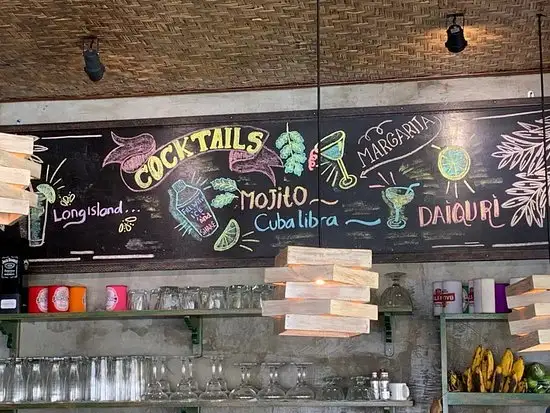 COCKTAILS
MARGARITA
Long island...
MOJITO
Cuba libra
DAIQURI